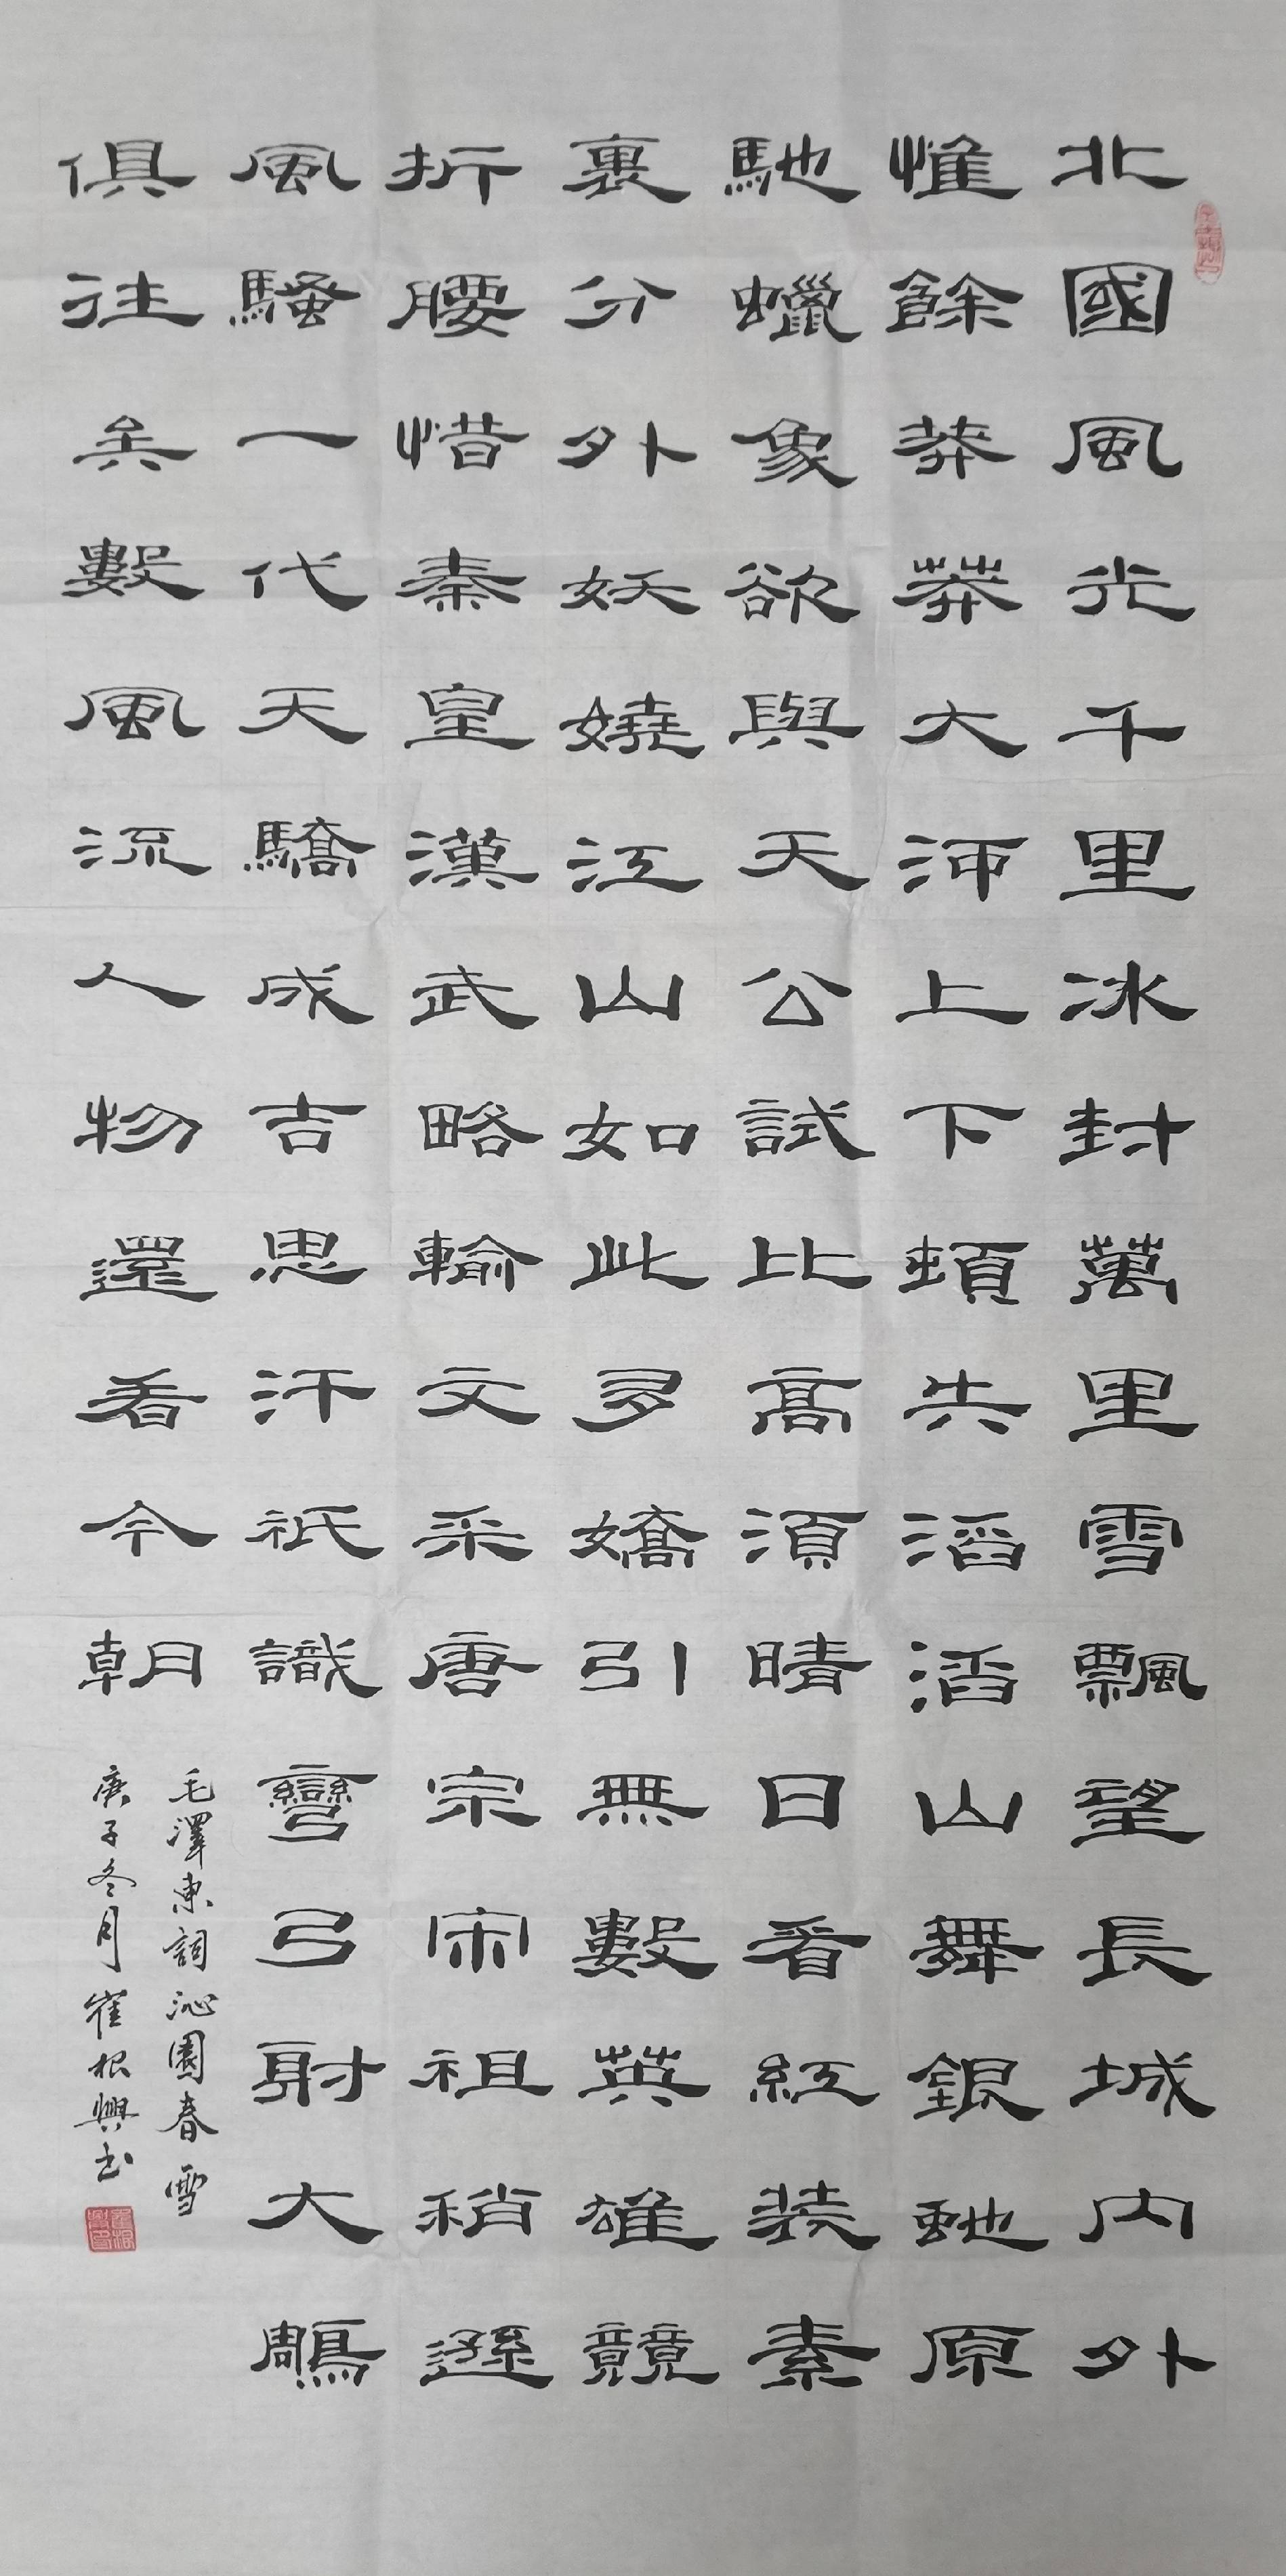 北國風光千里冰封萬里雪飄望長城內外
惟餘莽莽大河上下頓失滔滔山舞銀虵原
馳蠟象欲與天公試比高須晴日看紅裝素
裹分外妖嬈江山如此多嬌引無數英雄競
折腰惜秦皇漢武略輸文采唐宗宋祖稍遜
風騷一代天驕成吉思汗祇識彎弓射大鵰
俱往矣數風流人物還看今朝
毛澤東詞沁園春雪
庚子冬月崔根興书